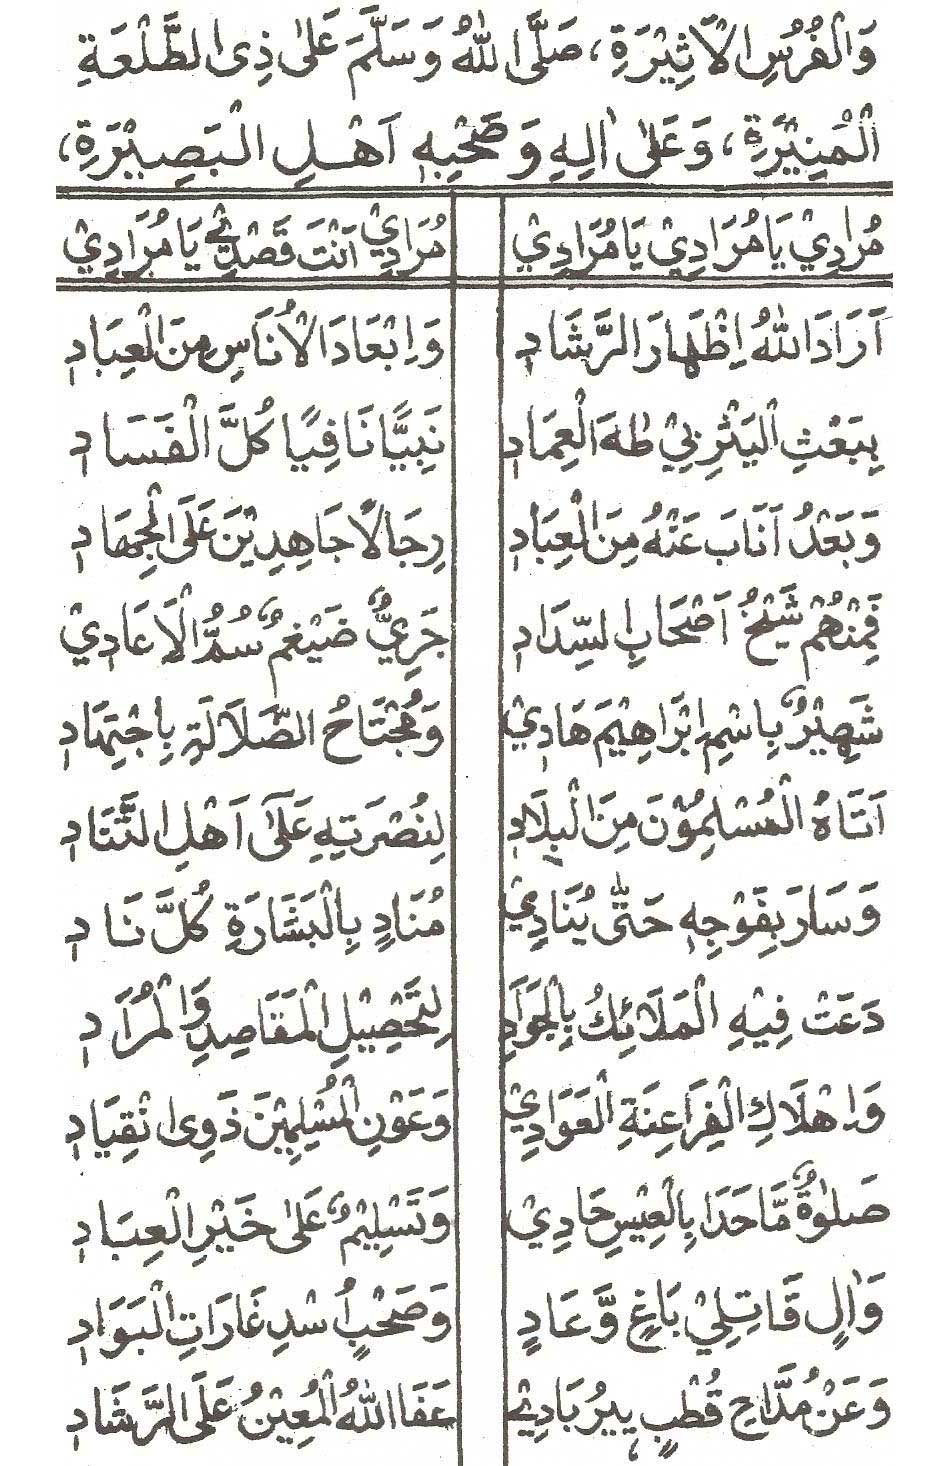 وَالْفُرُسِ الْاَثِيْرَةِ، صَلَّى اللهُ وَسَلَّمَ عَلٰى ذِى الطَّلْعَةِ
الْمُنِيْرَةِ، وَعَلٰى اٰلِهِ وَصَحْبِهٖ اَهْلِ الْبَصِيْرَةِ،
مُرَادِيْ يَا مُرَادِيْ يَا مُرَادِيْ مُرَادِيْ اَنْتَ قَصْدِيْ يَا مُرَادِيْ
اَرَادَ اللهُ اِظْهَارَ الرَّشَادِ وَاِبْعَادَ الْاُنَاسِ مِنَ الْعِبَادِ
بِبَعْثِ الْيَثْرِبِيْ طٰهَ الْعِمَادِ نَبِيًّا نَافِيًا كُلَّ الْفَسَادِ
وَبَعْدُ اَنَابَ عَنْهُ مِنَ الْعِبَادِ رِجَالًا جَاهِدِيْنَ عَلَى الْجِهَادِ
فَمِنْهُمْ شَيْخُ اَصْحَابِ السِّدَادِ جَرِيٌّ ضَيْغَمٌ سُمُّ الْاَعَادِيْ
شَهِيْرٌ بِاسْمِ اِبْرَاهِيْمَ هَادِيْ وَمُجْتَاحُ الضَّلَالَةِ بِاجْتِهَادِ
اَتَاهُ الْمُسْلِمُوْنَ مِنَ الْبِلَادِ لِنُصْرَتِهِ عَلَى اَهْلِ الثَّنَادِ
وَسَارَ بِفَوْجِهٖ حَتّٰى يُنَادِيْ مُنَادٍ بِالْبَشَارَةِ كُلَّ نَادِ
دَعَتْ فِيْهِ الْمَلَائِكُ بِالْجَوَادِ لِتَحْصِيْلِ الْمَقَاصِدِ وَالْمُرَادِ
وَاِهْلَاكِ الْفِرَاعِنَةِ الْعَوَادِيْ وَعَوْنِ الْمُسْلِمِيْنَ ذَوِى انْقِيَادِ
صَلٰوةٌ مَّا حَدَا بِالْعِيْسِ حَادِيْ وَتَسْلِيْمٌ عَلٰى خَيْرِ الْعِبَادِ
وَاٰلٍ قَاتِلِيْ بَاغٍ وَّعَادٍ وَصَحْبٍ اُسْدِ غَارَاتِ الْبَوَادِ
وَعَنْ مُدَّاحِ قُطْبٍ بِيرُبَادِيْ عَفَا اللهُ الْمُعِيْنُ عَلَى الرَّشَادِ